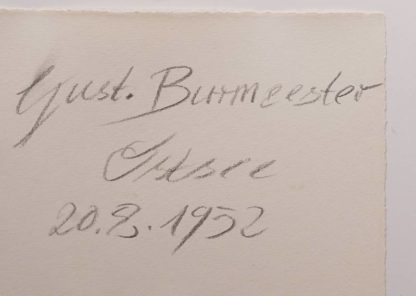 Gust. Burmeester
Ostsee
20.8.1952